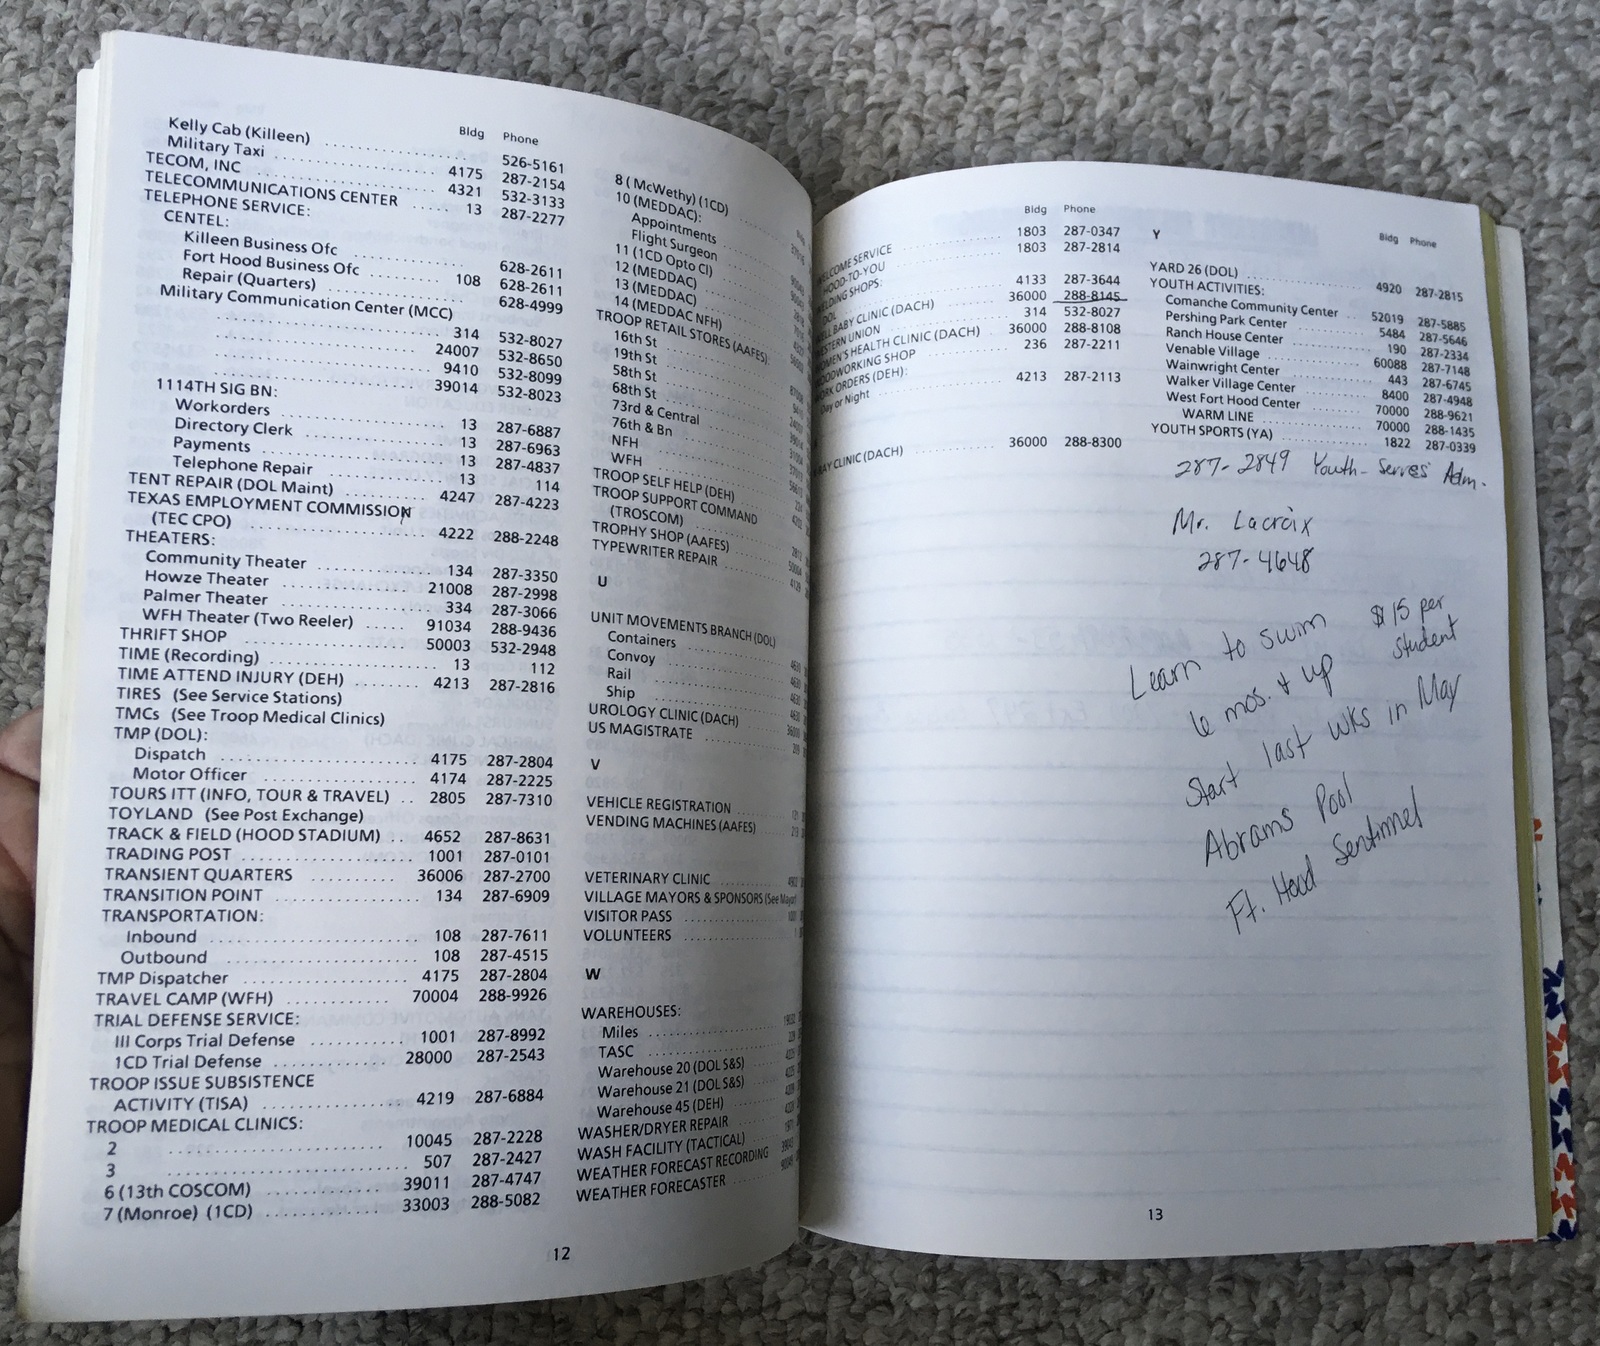 Bldg Phone
Kelly Cab (Killeen) 526-5161
Military Taxi 4175 287-2154
TECOM, INC 4321 532-3133
TELECOMMUNICATIONS CENTER 13 287-2277
TELEPHONE SERVICE:
CENTEL:
Killeen Business Ofc 628-2611
Fort Hood Business Ofc 108 628-2611
Repair (Quarters) 628-4999
Military Communication Center (MCC)
314 532-8027
24007 532-8650
9410 532-8099
39014 532-8023
1114TH SIG BN:
Workorders 13 287-6887
Directory Clerk 13 287-6963
Payments 13 287-4837
Telephone Repair 13 114
TENT REPAIR (DOL Maint) 4247 287-4223
TEXAS EMPLOYMENT COMMISSION
(TEC CPO) 4222 288-2248
THEATERS:
Community Theater 134 287-3350
Howze Theater 21008 287-2998
Palmer Theater 334 287-3066
WFH Theater (Two Reeler) 91034 288-9436
THRIFT SHOP 50003 532-2948
TIME (Recording) 13 112
TIME ATTEND INJURY (DEH) 4213 287-2816
TIRES (See Service Stations)
TMCs (See Troop Medical Clinics)
TMP (DOL):
Dispatch 4175 287-2804
Motor Officer 4174 287-2225
TOURS ITT (INFO, TOUR & TRAVEL) 2805 287-7310
TOYLAND (See Post Exchange)
TRACK & FIELD (HOOD STADIUM) 4652 287-8631
TRADING POST 1001 287-0101
TRANSIENT QUARTERS 36006 287-2700
TRANSITION POINT 134 287-6909
TRANSPORTATION:
Inbound 108 287-7611
Outbound 108 287-4515
TMP Dispatcher 4175 287-2804
TRAVEL CAMP (WFH) 70004 288-9926
TRIAL DEFENSE SERVICE:
III Corps Trial Defense 1001 287-8992
1CD Trial Defense 28000 287-2543
TROOP ISSUE SUBSISTENCE
ACTIVITY (TISA) 4219 287-6884
TROOP MEDICAL CLINICS:
2 10045 287-2228
3 507 287-2427
6 (13th COSCOM) 39011 287-4747
7 (Monroe) (1CD) 33003 288-5082
8 (McWethy) (1CD)
10 (MEDDAC):
Appointments
Flight Surgeon
11 (1CD Opto Cl)
12 (MEDDAC)
13 (MEDDAC)
14 (MEDDAC NFH)
TROOP RETAIL STORES (AAFES):
16th St
19th St
58th St
68th St
73rd & Central
76th & Bn
NFH
WFH
TROOP SELF HELP (DEH)
TROOP SUPPORT COMMAND
(TROSCOM)
TROPHY SHOP (AAFES)
TYPEWRITER REPAIR
U
UNIT MOVEMENTS BRANCH (DOL)
Containers
Convoy
Rail
Ship
UROLOGY CLINIC (DACH)
US MAGISTRATE
V
VEHICLE REGISTRATION
VENDING MACHINES (AAFES)
VETERINARY CLINIC
VILLAGE MAYORS & SPONSORS (See Mayor)
VISITOR PASS
VOLUNTEERS
W
WAREHOUSES:
Miles
TASC
Warehouse 20 (DOL S&S)
Warehouse 21 (DOL S&S)
Warehouse 45 (DEH)
WASHER/DRYER REPAIR
WASH FACILITY (TACTICAL)
WEATHER FORECAST RECORDING
WEATHER FORECASTER
12
Bldg Phone
ELCOME SERVICE 1803 287-0347
HOOD-TO-YOU 1803 287-2814
ELDING SHOPS:
DOL 4133 287-3644
ELL BABY CLINIC (DACH) 36000 288-8145
ESTERN UNION 314 532-8027
OMEN'S HEALTH CLINIC (DACH) 36000 288-8108
OODWORKING SHOP 236 287-2211
ORK ORDERS (DEH):
Day or Night 4213 287-2113
RAY CLINIC (DACH) 36000 288-8300
Y Bldg Phone
YARD 26 (DOL) 4920 287-2815
YOUTH ACTIVITIES:
Comanche Community Center 52019 287-5885
Pershing Park Center 5484 287-5646
Ranch House Center 190 287-2334
Venable Village 60088 287-7148
Wainwright Center 443 287-6745
Walker Village Center 8400 287-4948
West Fort Hood Center 70000 288-9621
WARM LINE 70000 288-1435
YOUTH SPORTS (YA) 1822 287-0339
287-2849 Youth-Serves Adm.
Mr. Lacroix
287-4648
Learn to swim $15 per
6 mos. & up student
Start last wks in May
Abrams Pool
Ft. Hood Sentinnel
13